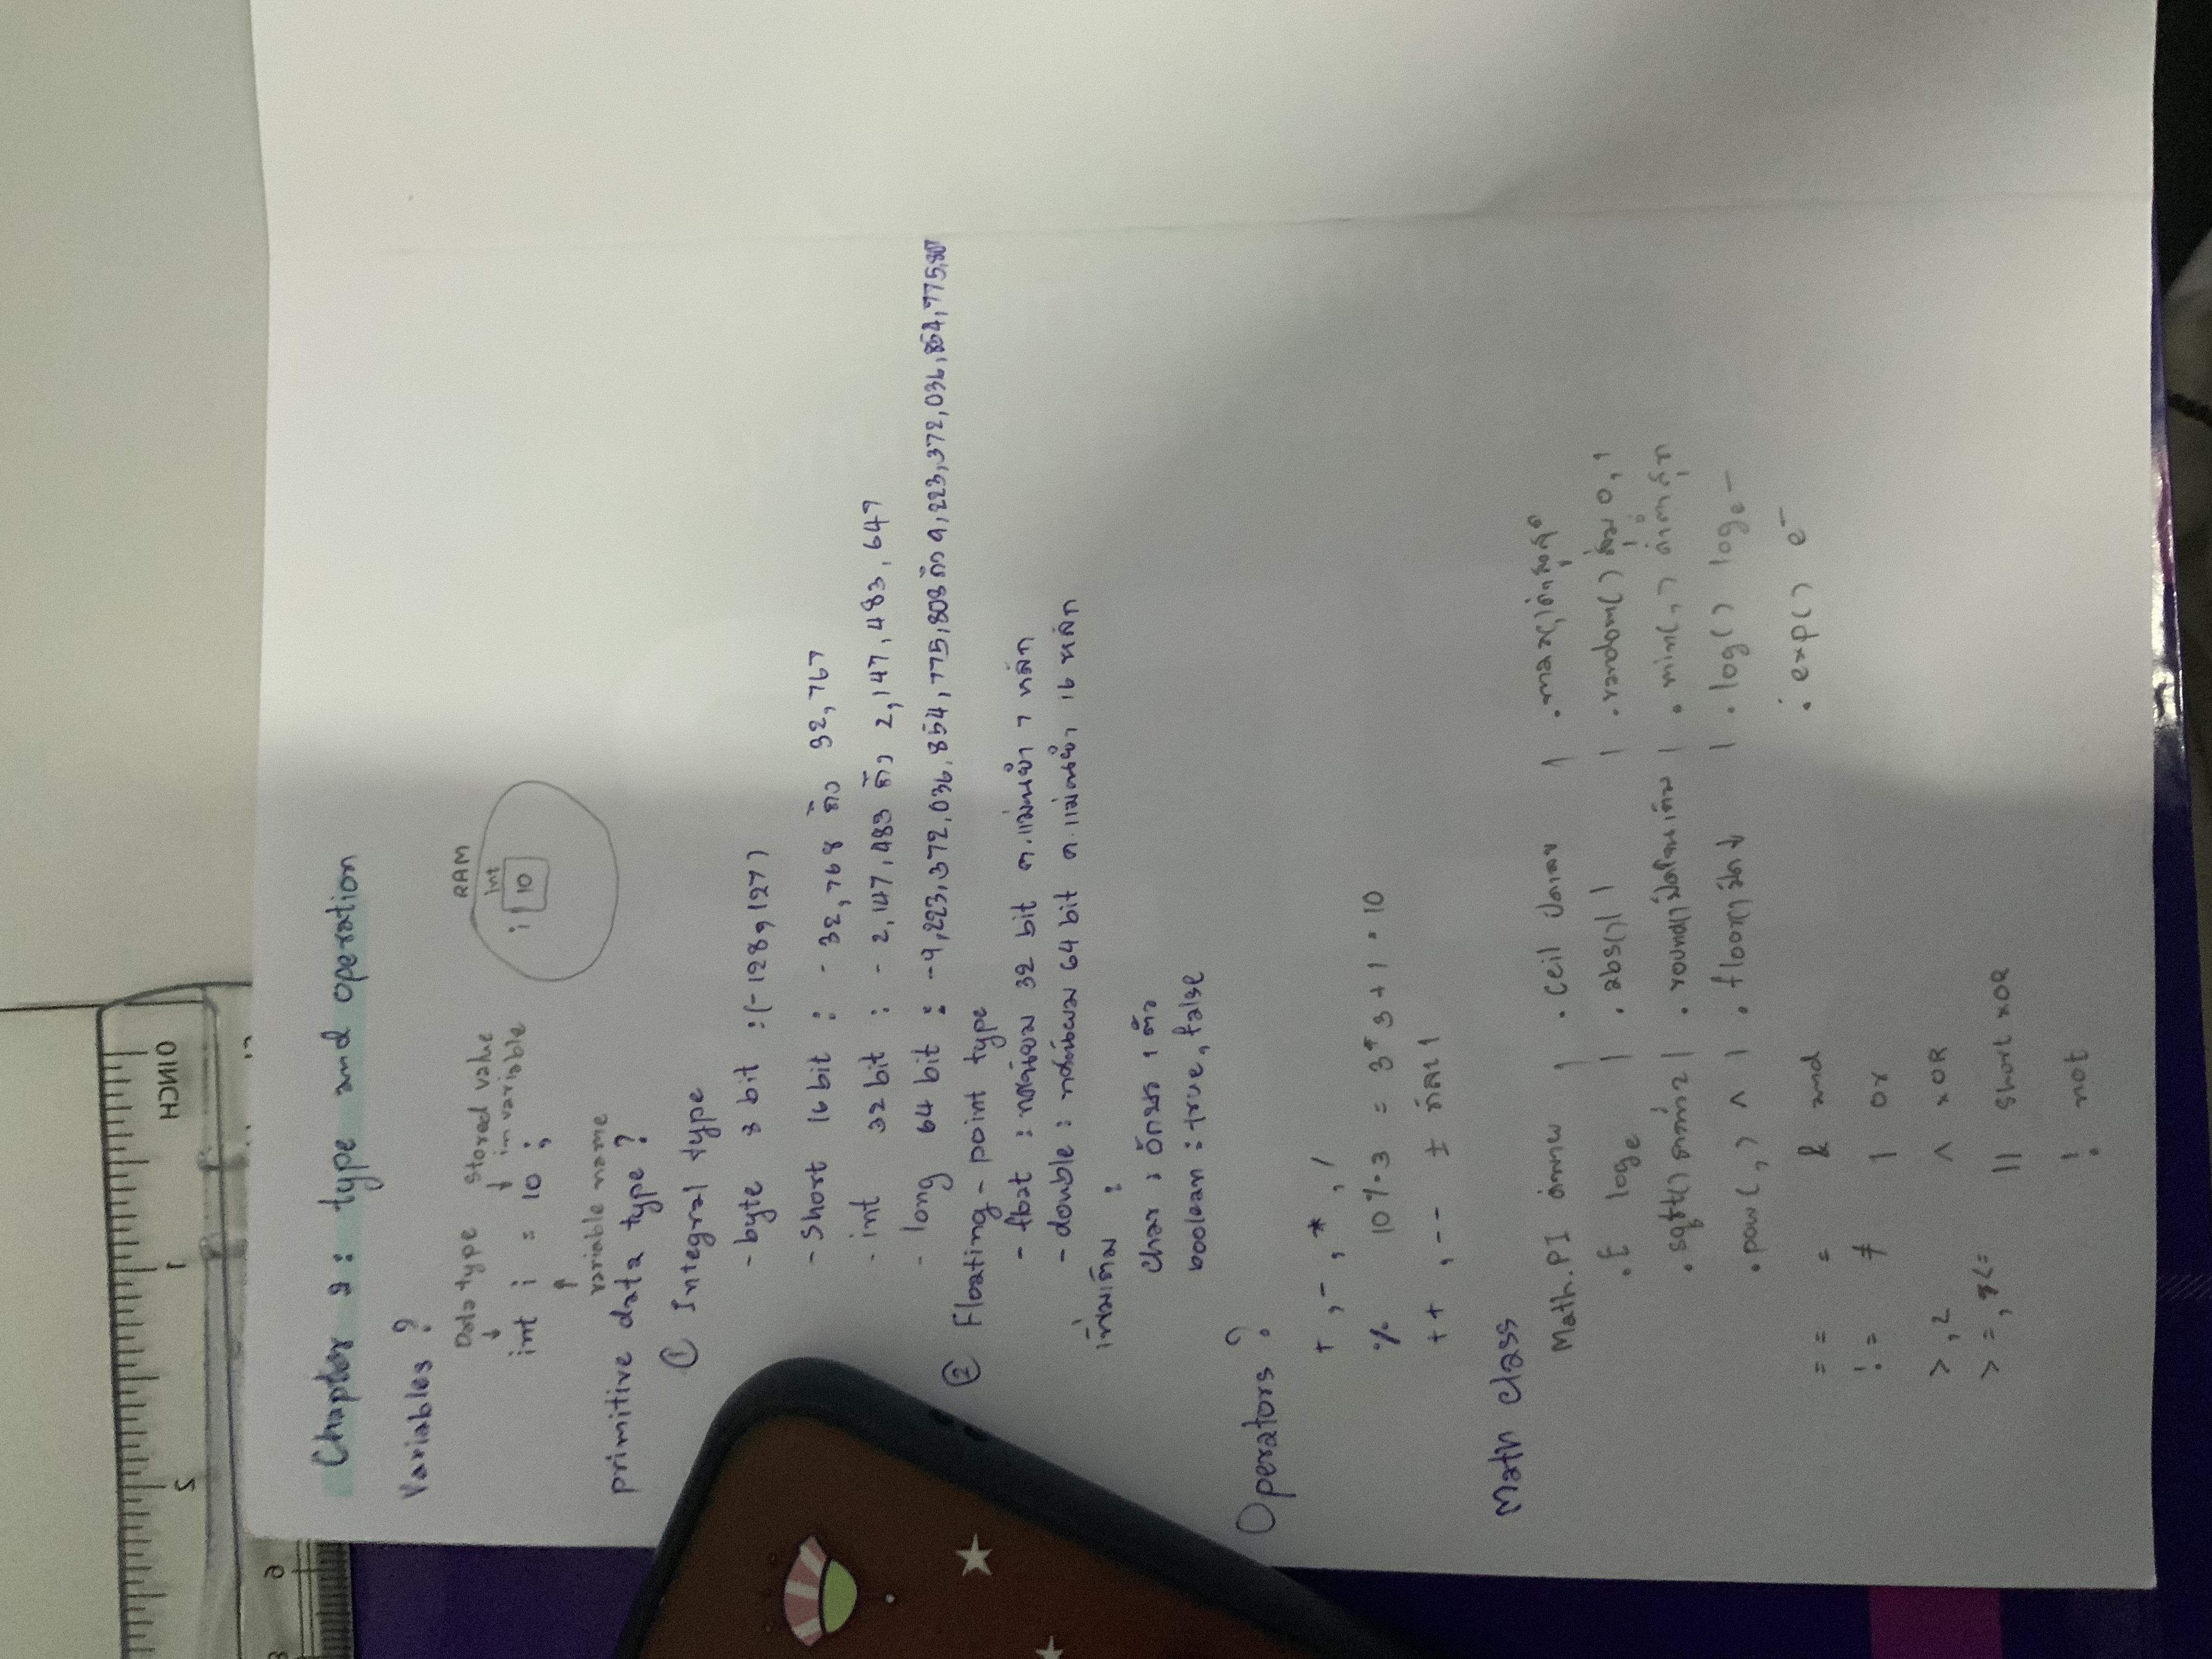 0 INCH
1
2
6
Chapter 2: type and operation
Variables ?
Data type
stored value
in variable
int i = 10 ;
variable name
RAM
int
i 10
primitive data type ?
① Integral type
- byte 8 bit : (-128, 127)
- Short 16 bit : - 32,768 ถึง 32,767
- int 32 bit : - 2,147,483 ถึง 2,147,483,647
- long 64 bit : -9,223,372,036,854,775,808 ถึง 9,223,372,036,854,775,807
② Floating - point type
- float : ทศนิยม 32 bit ค.แม่นยำ 7 หลัก
- double : ทศนิยม 64 bit ค.แม่นยำ 16 หลัก
เพิ่มเติม :
char : อักษร 1 ตัว
boolean : true, false
Operators ?
+ , - , * , /
% 10 % 3 = 3*3+1 = 10
++ , -- ± ทีละ 1
Math class
Math.PI ค่าพาย | .ceil ปัดเลข | .max(,) ค่าสูงสุด
.E logₑ | .abs() | | | .random() สุ่ม 0, 1
.sqrt() รากที่ 2 | .round() | .min(,) ค่าต่ำสุด
.pow(,) ^ | .floor() ปัด ↓ | .log() logₑ -
.exp() e⁻
== = & and
!= ≠ | or
> , < ^ xOR
>= , <= || short xOR
! not